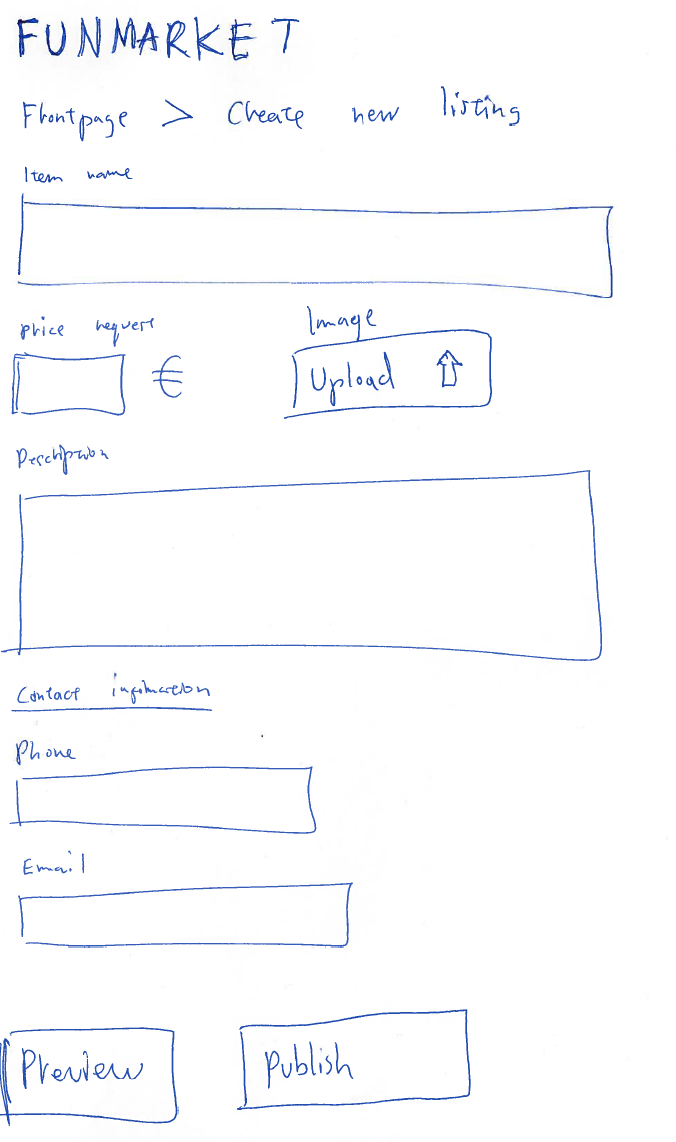 FUNMARKET
Frontpage > Create new listing
Item name
price request
€
Image
Upload
Description
Contact information
Phone
Email
Preview
Publish